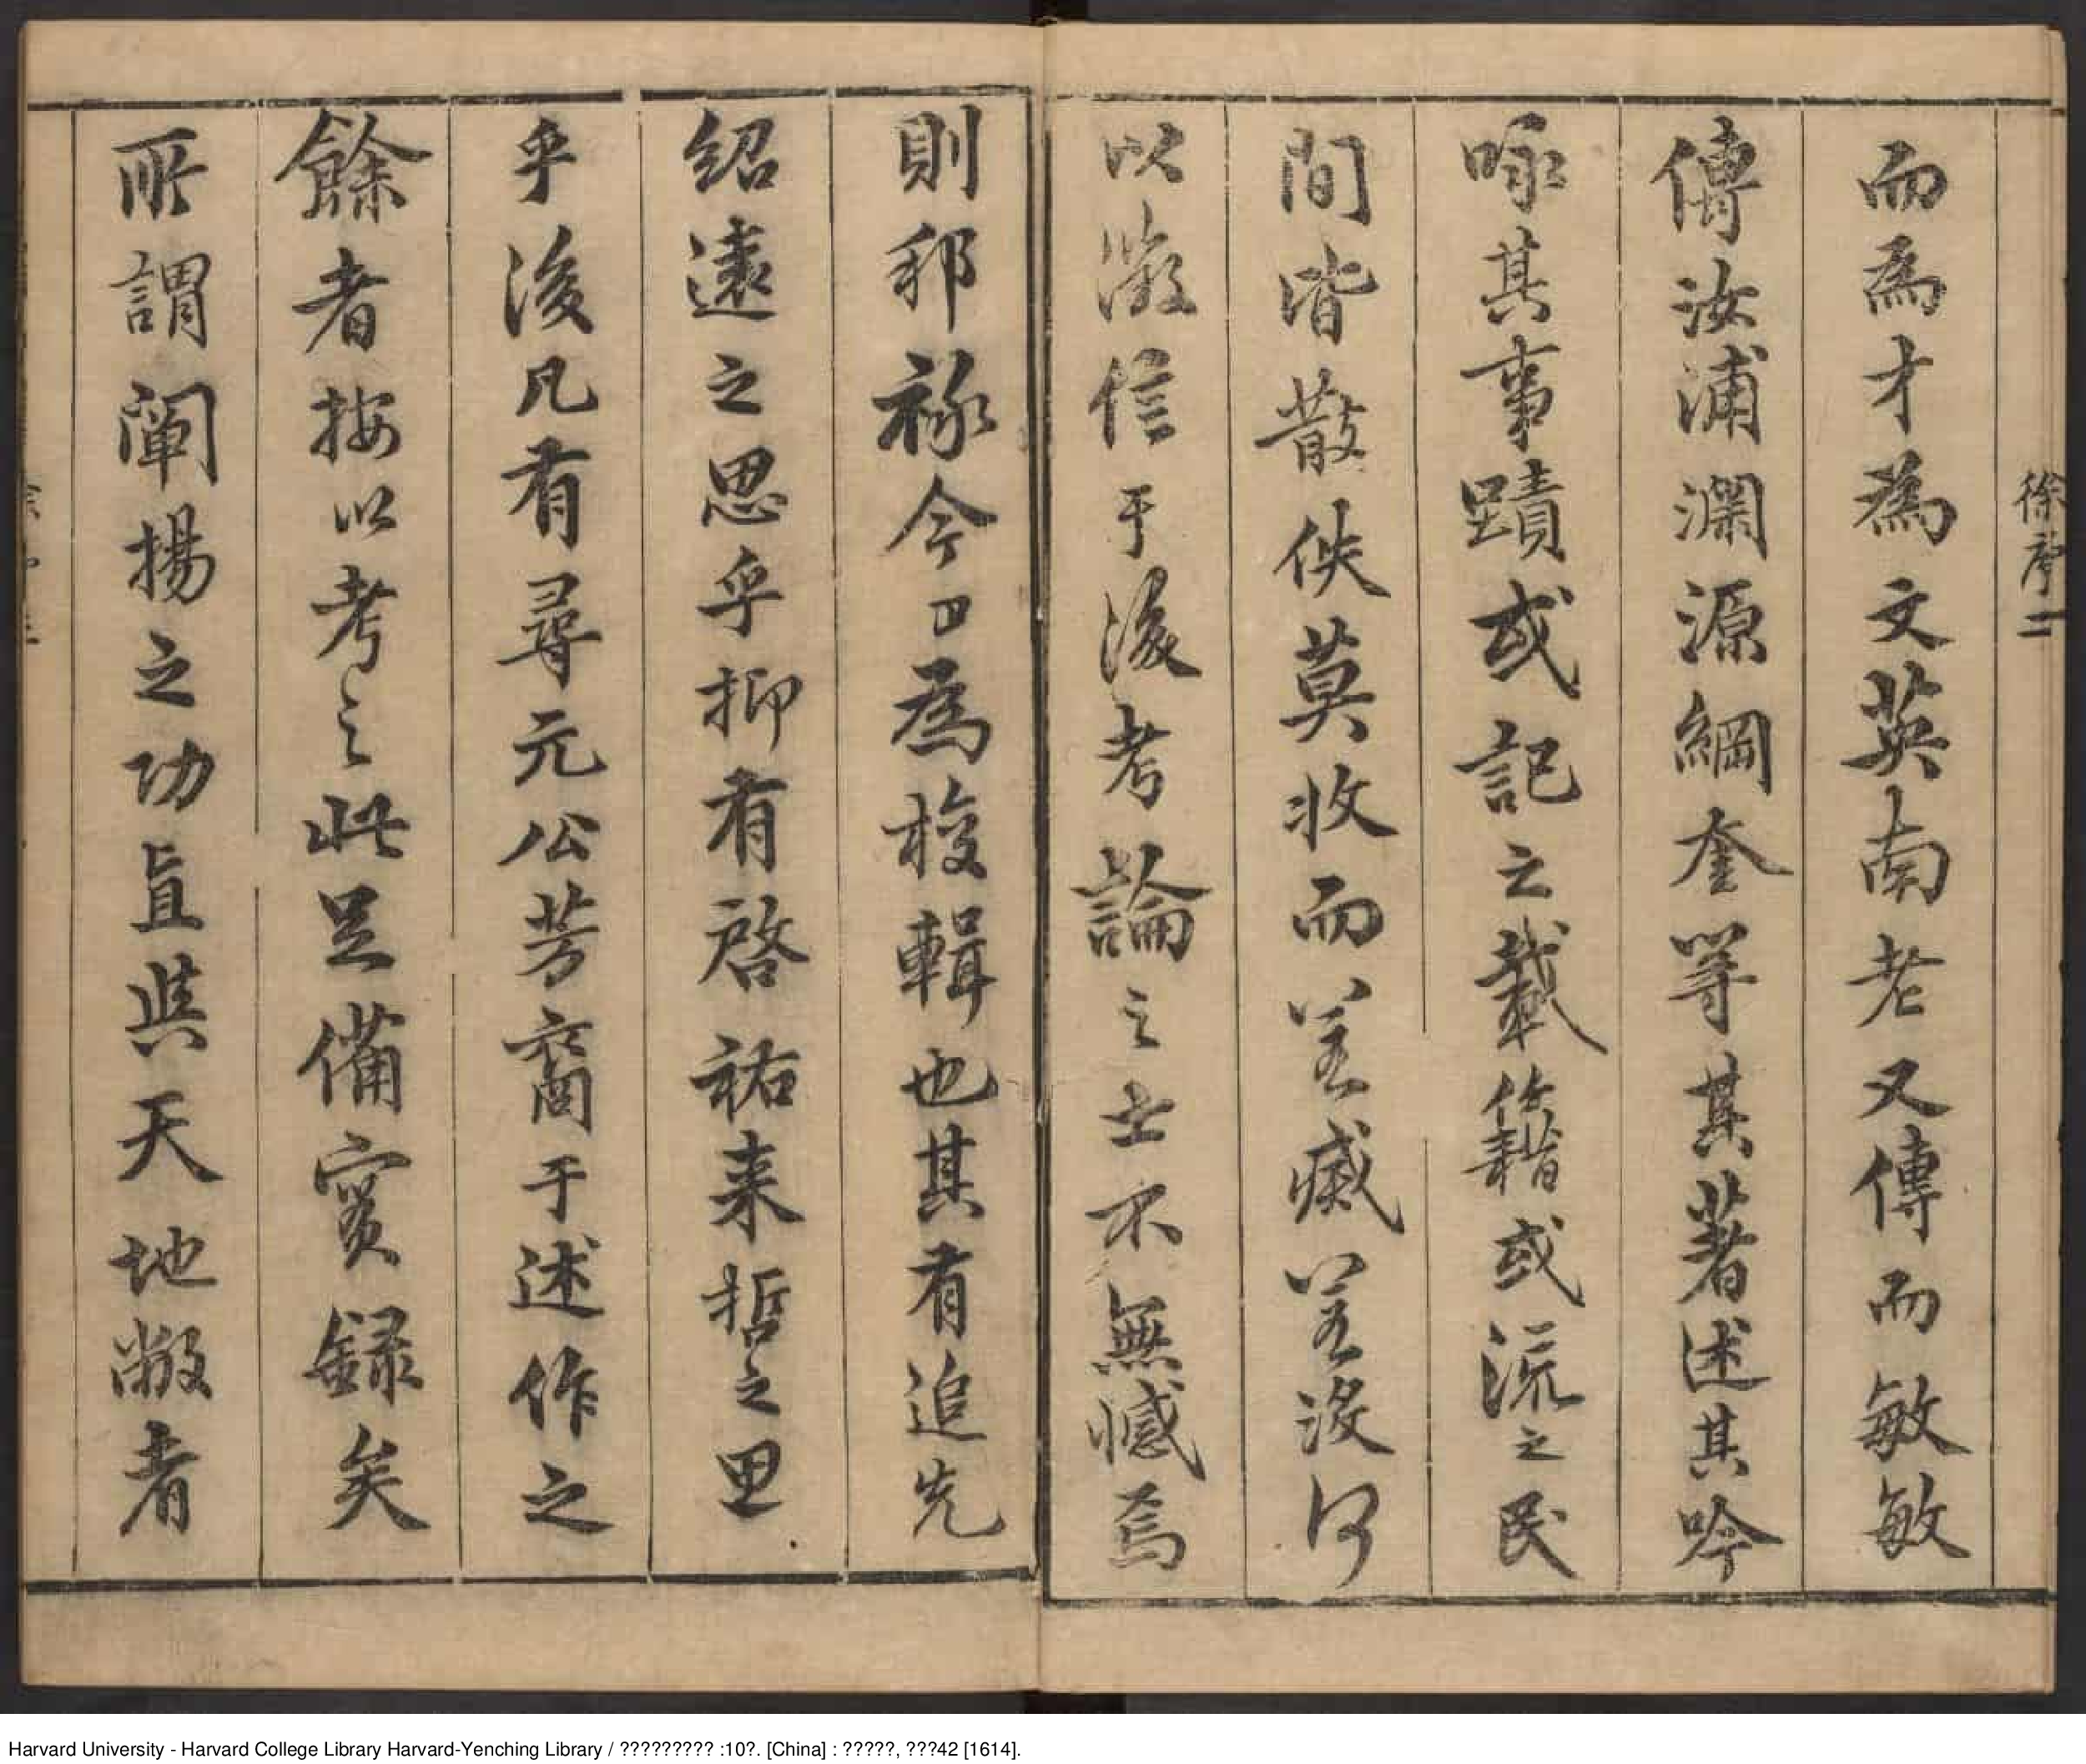 徐序 二
而為才為文英南老又傳而敏敏
傳汝浦瀾源綱奎等其著述其吟
咏其事蹟或記之載籍或流之民
間皆散佚莫收而若臧若沒何
以徵信于後考論之士不無憾焉
則邦祿今日為梭輯也其有追先
紹遠之思乎抑有啓祐来哲之里
乎後凡有尋元公芳裔于述作之
餘者按以考之此足備實録矣
所謂闡揚之功直與天地敝者
Harvard University - Harvard College Library Harvard-Yenching Library / ????????? :10?. [China] : ?????, ???42 [1614].